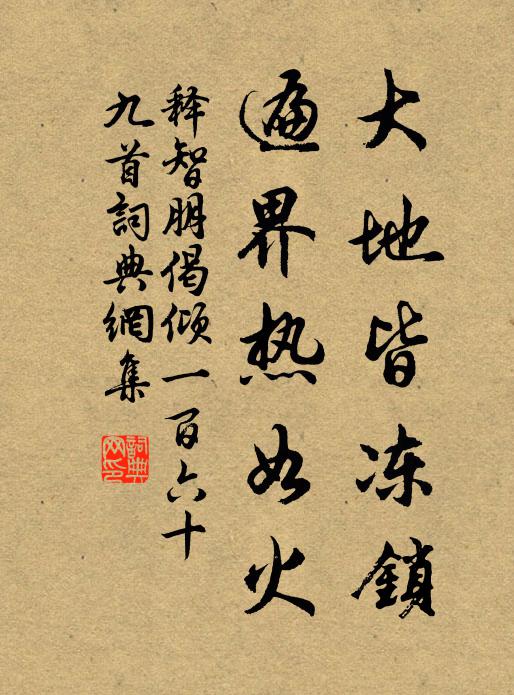 大地皆冻鎖
遍界热如火
释智朋偈倾一百六十
九首詞典網集
詞典网印